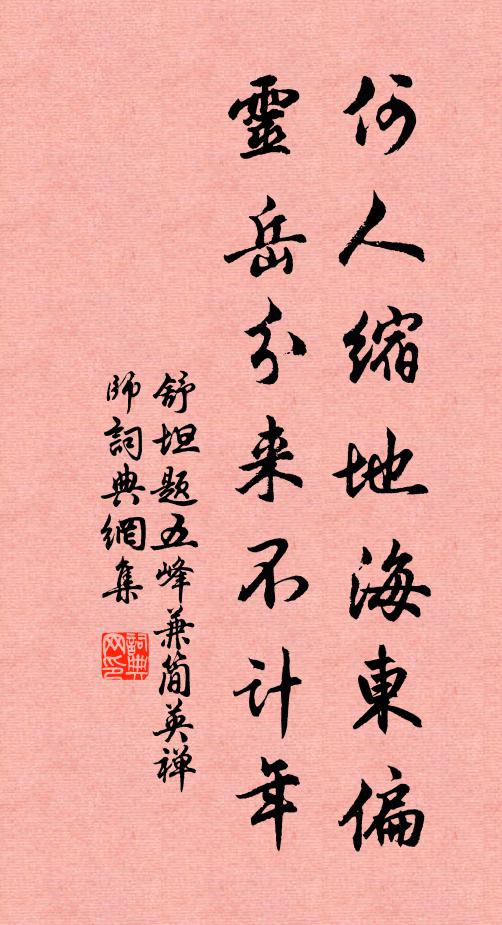 何人縮地海東偏
靈岳分来不計年
舒坦題五峰兼简英禅
師詞典網集
詞典网印